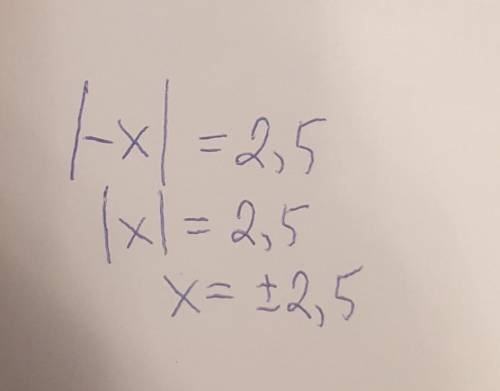 |-x| = 2,5
|x| = 2,5
x = ±2,5